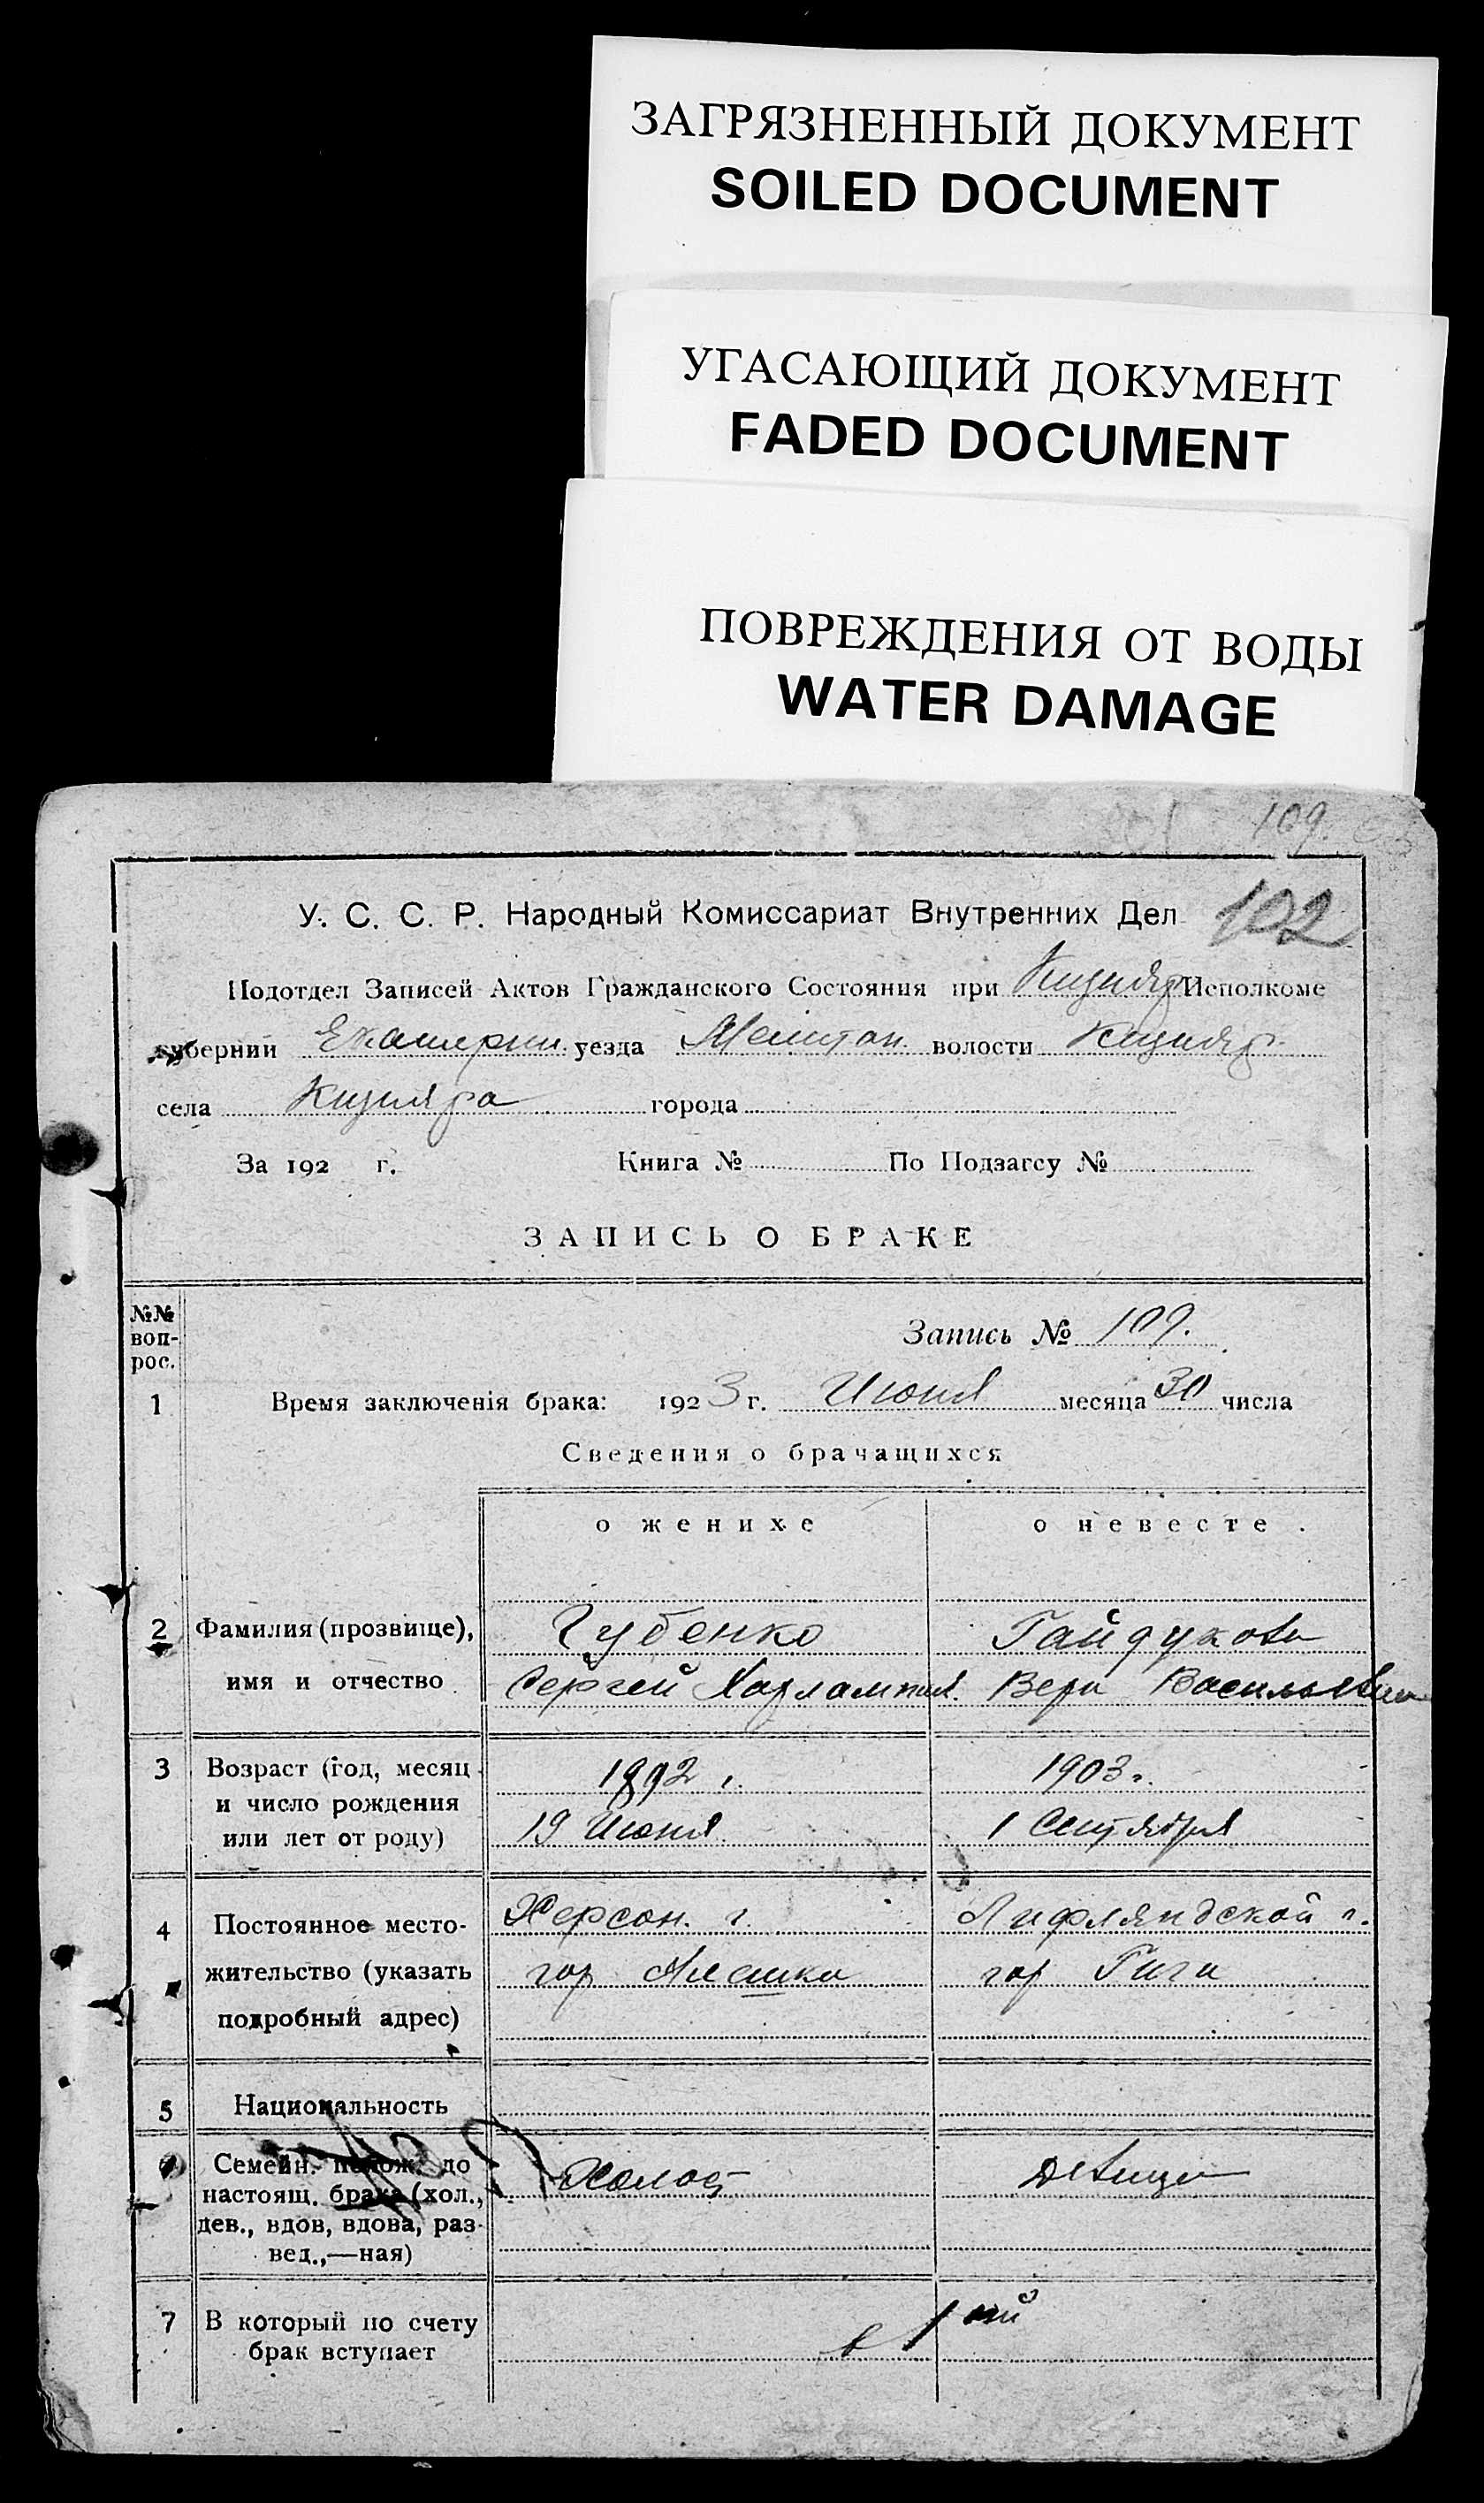 ЗАГРЯЗНЕННЫЙ ДОКУМЕНТ
SOILED DOCUMENT
УГАСАЮЩИЙ ДОКУМЕНТ
FADED DOCUMENT
ПОВРЕЖДЕНИЯ ОТ ВОДЫ
WATER DAMAGE
109.
102
У. С. С. Р. Народный Комиссариат Внутренних Дел
Подотдел Записей Актов Гражданского Состояния при Кизияр Исполкоме
губернии Екатерин. уезда Мелитоп. волости Кизияр.
села Кизияра города
За 192 г. Книга № По Подзагсу №
ЗАПИСЬ О БРАКЕ
№№
воп-
рос.
Запись № 109.
1 Время заключенія брака: 1923 г. Июня месяца 30 числа
Сведения о брачащихся
о женихе о невесте.
2 Фамилия (прозвище), Губенко Гайдукова
имя и отчество Сергей Харлампий. Вера Васильевна
3 Возраст (год, месяц 1892 г. 1903 г.
и число рождения
или лет от роду) 19 Июня 1 Сентября
4 Постоянное место- Херсон. г. Лифляндской г.
жительство (указать гор Алешки гор Рига
подробный адрес)
5 Национальность
Семейн. полож. до Холост девица
настоящ. брака (хол.,
дев., вдов, вдова, раз-
вед.,—ная)
7 В который по счету в 1ый
брак вступает